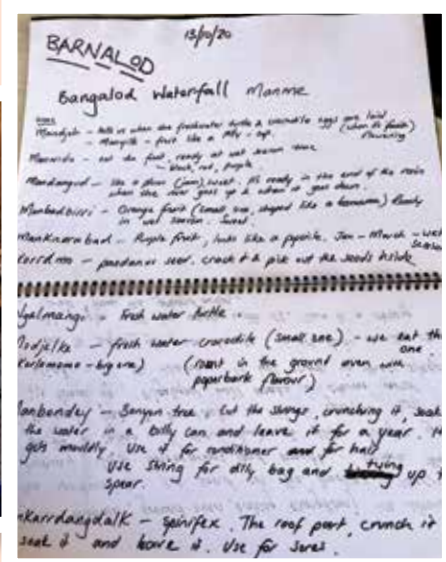 13/10/20
BARNALOD
Bangalod Waterfall Manme
- tells us when the freshwater turtle & crocodile eggs are laid
- fruit like a (when it's flowering)
- eat the fruit, ready at wet season time
- black, red, purple
- like a plum (jam), sweet. It's ready in the end of the rain
when the river goes up & when it goes down.
Manbadbirri - Orange fruit (small one, shaped like a banana) Ready
in wet season - sweet.
- Purple fruit, looks like a Jan - March - wet
season
- pandanus seed, crack it & pick out the seeds inside
Ngalmangi - Fresh water turtle
- fresh water crocodile (small one) - we eat th
one
big one) (roast in the ground oven with
paperbark flavour)
anbendey - Banyan tree. Cut the strings, crunching it, soak
the water in a billy can and leave it for a year.
gets mouldy. Use it for conditioner and for hair
Use string for dilly bag and tying up
spear.
nkarrdangdalk - spinifex. The root part, crunch it
soak it and leave it. Use for sores.